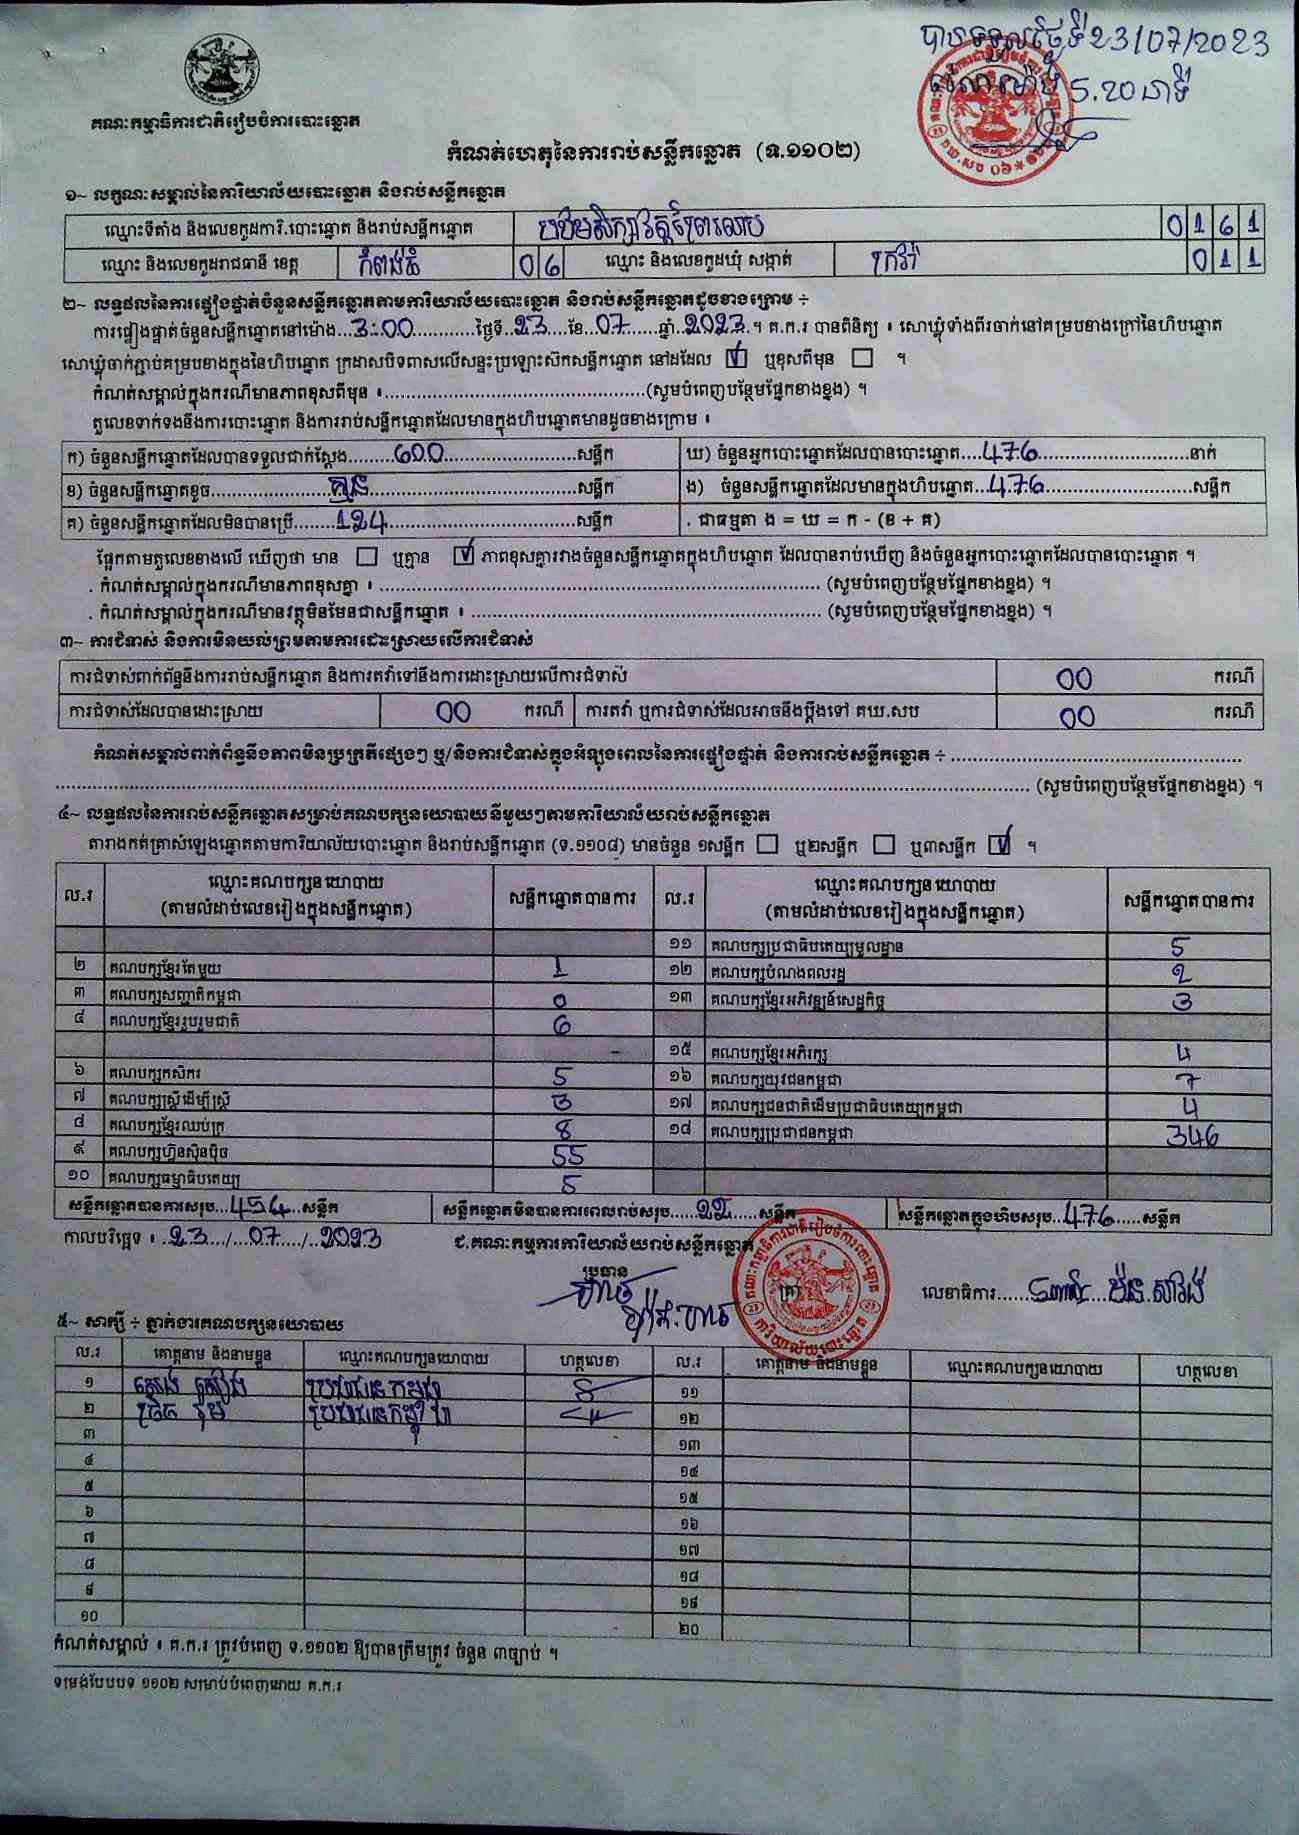 បានទទួលថ្ងៃទី 23/07/2023
វេលាម៉ោង 5.20 នាទី
គណៈកម្មាធិការជាតិរៀបចំការបោះឆ្នោត
កំណត់ហេតុនៃការរាប់សន្លឹកឆ្នោត (ទ.១១០២)
១~ លក្ខណៈសម្គាល់នៃការិយាល័យបោះឆ្នោត និងរាប់សន្លឹកឆ្នោត
ឈ្មោះទីតាំង និងលេខកូដការិ.បោះឆ្នោត និងរាប់សន្លឹកឆ្នោត បឋមសិក្សាវត្តព្រៃលាប 0 1 6 1
ឈ្មោះ និងលេខកូដរាជធានី ខេត្ត កំពង់ធំ 0 6 ឈ្មោះ និងលេខកូដឃុំ សង្កាត់ ក្រវ៉ា 0 1 1
២~ លទ្ធផលនៃការផ្ទៀងផ្ទាត់ចំនួនសន្លឹកឆ្នោតតាមការិយាល័យបោះឆ្នោត និងរាប់សន្លឹកឆ្នោតដូចខាងក្រោម ÷
ការផ្ទៀងផ្ទាត់ចំនួនសន្លឹកឆ្នោតនៅម៉ោង...3:00...ថ្ងៃទី..23...ខែ..07...ឆ្នាំ..2023.។ គ.ក.រ បានពិនិត្យ ៖ សោឃ្លុំទាំងពីរចាក់នៅគម្របខាងក្រៅនៃហិបឆ្នោត
សោឃ្លុំចាក់ភ្ជាប់គម្របខាងក្នុងនៃហិបឆ្នោត ក្រដាសបិទពាសលើសន្ទះប្រឡោះស៊កសន្លឹកឆ្នោត នៅដដែល ☑ ឬខុសពីមុន ☐ ។
កំណត់សម្គាល់ក្នុងករណីមានភាពខុសពីមុន ៖...(សូមបំពេញបន្ថែមផ្នែកខាងខ្នង) ។
តួលេខទាក់ទងនឹងការបោះឆ្នោត និងការរាប់សន្លឹកឆ្នោតដែលមានក្នុងហិបឆ្នោតមានដូចខាងក្រោម ៖
ក) ចំនួនសន្លឹកឆ្នោតដែលបានទទួលជាក់ស្តែង...600...សន្លឹក ឃ) ចំនួនអ្នកបោះឆ្នោតដែលបានបោះឆ្នោត...476...នាក់
ខ) ចំនួនសន្លឹកឆ្នោតខូច...គ្មាន...សន្លឹក ង) ចំនួនសន្លឹកឆ្នោតដែលមានក្នុងហិបឆ្នោត...476...សន្លឹក
គ) ចំនួនសន្លឹកឆ្នោតដែលមិនបានប្រើ...124...សន្លឹក . ជាធម្មតា ង = ឃ = ក - (ខ + គ)
ផ្អែកតាមតួលេខខាងលើ ឃើញថា មាន ☐ ឬគ្មាន ☑ ភាពខុសគ្នារវាងចំនួនសន្លឹកឆ្នោតក្នុងហិបឆ្នោត ដែលបានរាប់ឃើញ និងចំនួនអ្នកបោះឆ្នោតដែលបានបោះឆ្នោត ។
. កំណត់សម្គាល់ក្នុងករណីមានភាពខុសគ្នា ៖ ... (សូមបំពេញបន្ថែមផ្នែកខាងខ្នង) ។
. កំណត់សម្គាល់ក្នុងករណីមានវត្ថុមិនមែនជាសន្លឹកឆ្នោត ៖ ... (សូមបំពេញបន្ថែមផ្នែកខាងខ្នង) ។
៣~ ការជំទាស់ និងការមិនយល់ព្រមតាមការដោះស្រាយលើការជំទាស់
ការជំទាស់ពាក់ព័ន្ធនឹងការរាប់សន្លឹកឆ្នោត និងការតវ៉ាទៅនឹងការដោះស្រាយលើការជំទាស់ 00 ករណី
ការជំទាស់ដែលបានដោះស្រាយ 00 ករណី ការតវ៉ា ឬការជំទាស់ដែលអាចនឹងប្តឹងទៅ គឃ.សប 00 ករណី
កំណត់សម្គាល់ពាក់ព័ន្ធនឹងភាពមិនប្រក្រតីផ្សេងៗ ឬ/និងការជំទាស់ក្នុងអំឡុងពេលនៃការផ្ទៀងផ្ទាត់ និងការរាប់សន្លឹកឆ្នោត ÷ ...
... (សូមបំពេញបន្ថែមផ្នែកខាងខ្នង) ។
៤~ លទ្ធផលនៃការរាប់សន្លឹកឆ្នោតសម្រាប់គណបក្សនយោបាយនីមួយៗតាមការិយាល័យរាប់សន្លឹកឆ្នោត
តារាងកត់ត្រាសំឡេងឆ្នោតតាមការិយាល័យបោះឆ្នោត និងរាប់សន្លឹកឆ្នោត (ទ.១១០៨) មានចំនួន ១សន្លឹក ☐ ឬ២សន្លឹក ☐ ឬ៣សន្លឹក ☑ ។
ល.រ ឈ្មោះគណបក្សនយោបាយ (តាមលំដាប់លេខរៀងក្នុងសន្លឹកឆ្នោត) សន្លឹកឆ្នោតបានការ ល.រ ឈ្មោះគណបក្សនយោបាយ (តាមលំដាប់លេខរៀងក្នុងសន្លឹកឆ្នោត) សន្លឹកឆ្នោតបានការ
១១ គណបក្សប្រជាធិបតេយ្យមូលដ្ឋាន 5
២ គណបក្សខ្មែរតែមួយ 1 ១២ គណបក្សបំណងពលរដ្ឋ 2
៣ គណបក្សសញ្ជាតិកម្ពុជា 0 ១៣ គណបក្សខ្មែរអភិវឌ្ឍន៍សេដ្ឋកិច្ច 3
៤ គណបក្សខ្មែររួបរួមជាតិ 6
១៥ គណបក្សខ្មែរអភិរក្ស 4
៦ គណបក្សកសិករ 5 ១៦ គណបក្សយុវជនកម្ពុជា 7
៧ គណបក្សស្ត្រីដើម្បីស្ត្រី 3 ១៧ គណបក្សជនជាតិដើមប្រជាធិបតេយ្យកម្ពុជា 4
៨ គណបក្សខ្មែរឈប់ក្រ 8 ១៨ គណបក្សប្រជាជនកម្ពុជា 346
៩ គណបក្សហ៊្វុនស៊ិនប៉ិច 55
១០ គណបក្សធម្មាធិបតេយ្យ 5
សន្លឹកឆ្នោតបានការសរុប...454...សន្លឹក សន្លឹកឆ្នោតមិនបានការពេលរាប់សរុប...22...សន្លឹក សន្លឹកឆ្នោតក្នុងហិបសរុប...476...សន្លឹក
កាលបរិច្ឆេទ ៖ ..23.../...07.../..2023 ជ.គណៈកម្មការការិយាល័យរាប់សន្លឹកឆ្នោត
ប្រធាន
លេខាធិការ...
៥~ សាក្សី ÷ ភ្នាក់ងារគណបក្សនយោបាយ
ល.រ គោត្តនាម និងនាមខ្លួន ឈ្មោះគណបក្សនយោបាយ ហត្ថលេខា ល.រ គោត្តនាម និងនាមខ្លួន ឈ្មោះគណបក្សនយោបាយ ហត្ថលេខា
១ ប្រជាជនកម្ពុជា ១១
២ ប្រជាជនកម្ពុជា ១២
៣ ១៣
៤ ១៤
៥ ១៥
៦ ១៦
៧ ១៧
៨ ១៨
៩ ១៩
១០ ២០
កំណត់សម្គាល់ ៖ គ.ក.រ ត្រូវបំពេញ ទ.១១០២ ឱ្យបានត្រឹមត្រូវ ចំនួន ៣ច្បាប់ ។
ទម្រង់បែបបទ ១១០២ សម្រាប់បំពេញដោយ គ.ក.រ